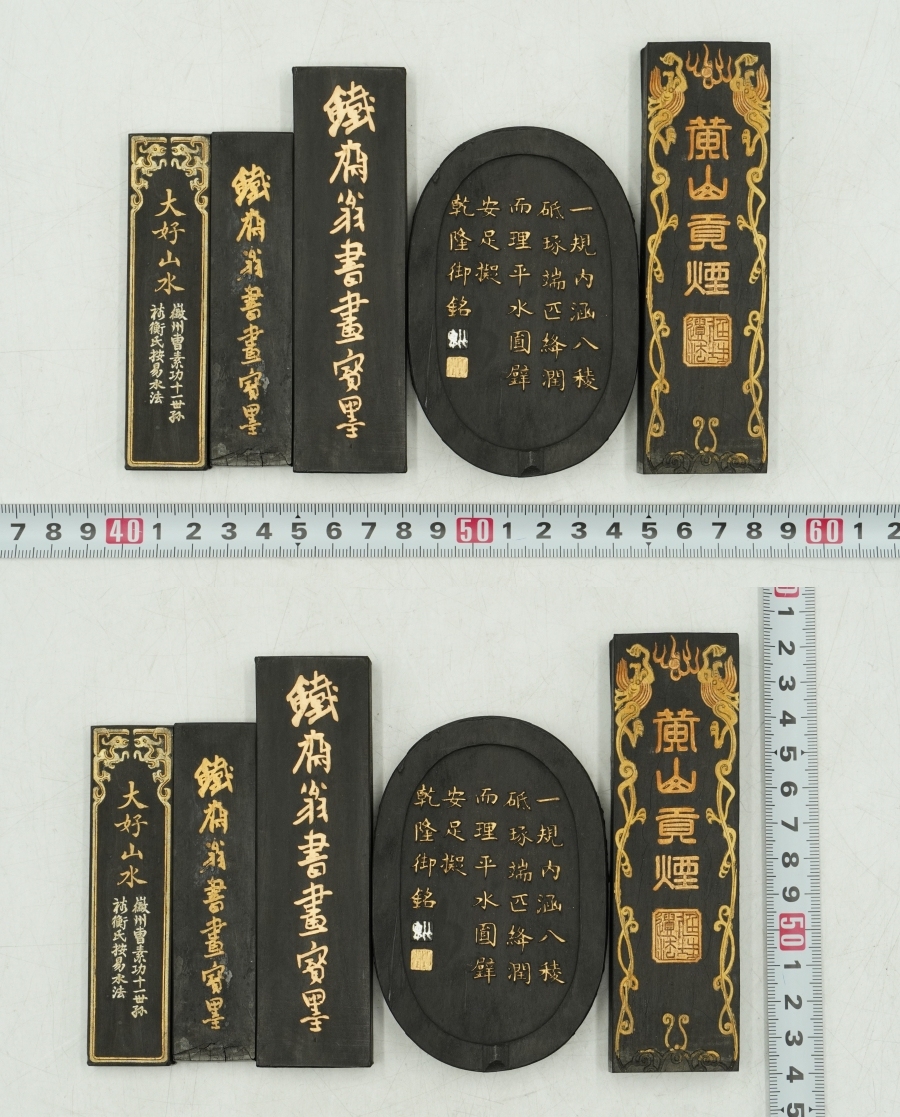 大好山水
徽州曹素功十一世孙
衡氏按易水法
鐵齋翁書畫寶墨
鐵齋翁書畫寶墨
一規内涵八稜
砥琢端匹絳潤
而理平水圓璧
安足擬
乾隆御銘
黄山貢煙
7 8 9 40 1 2 3 4 5 6 7 8 9 50 1 2 3 4 5 6 7 8 9 60 1 2
大好山水
徽州曹素功十一世孙
衡氏按易水法
鐵齋翁書畫寶墨
鐵齋翁書畫寶墨
一規内涵八稜
砥琢端匹絳潤
而理平水圓璧
安足擬
乾隆御銘
黄山貢煙
1 2 3 4 5 6 7 8 9 50 1 2 3 4 5